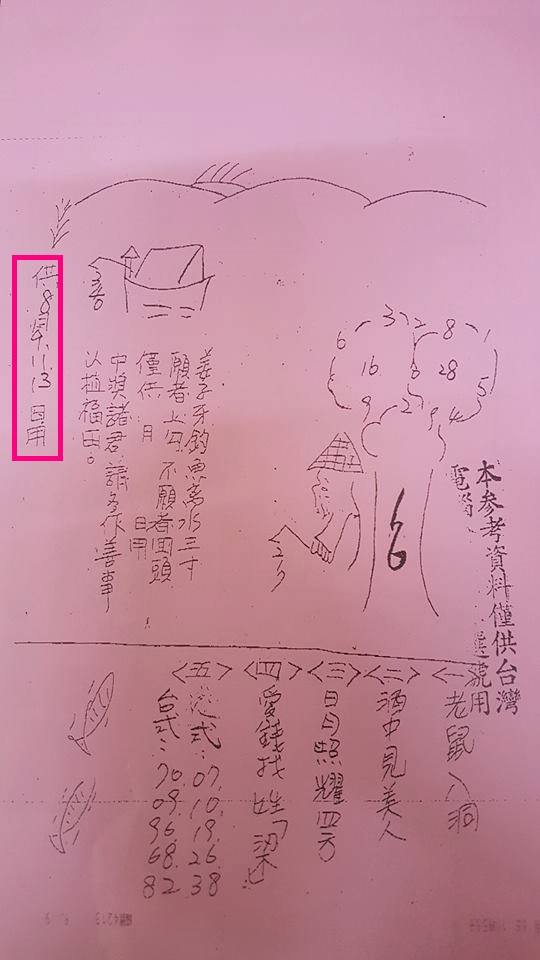 本參考資料僅供台灣
電腦選號用
3
2
8
1
6
16
28
5
9
2
4
6
姜子牙釣魚離水三寸
願者上勾不願者回頭
僅供 月 日用
中獎諸君請多作善事
以植福田。
<一>老鼠入洞
<二>酒中見美人
<三>日月照耀四方
<四>愛錢找姓「梁」
<五>港式:07.10.19.26.38
台式:70.09.96.68.82